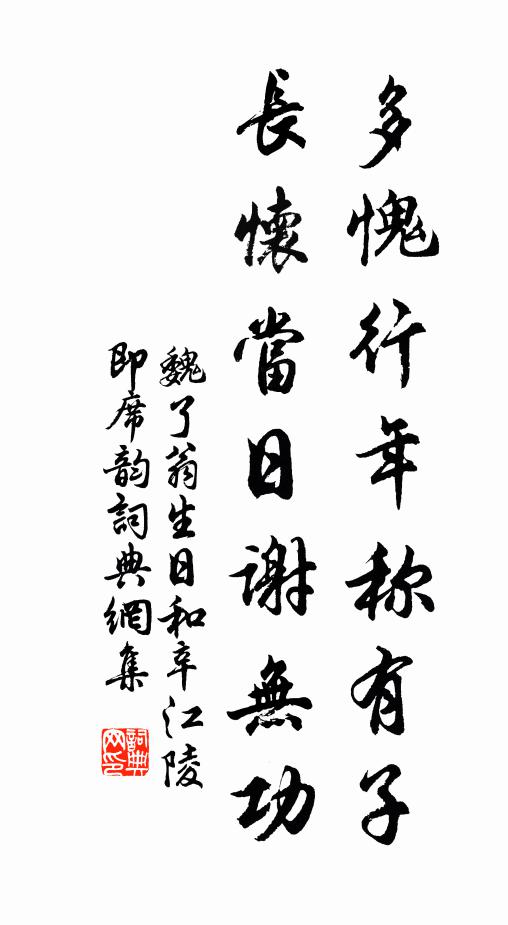 多愧行年称有子
長懷當日谢無功
魏了翁生日和辛江陵
即席韵詞典網集
詞典网印